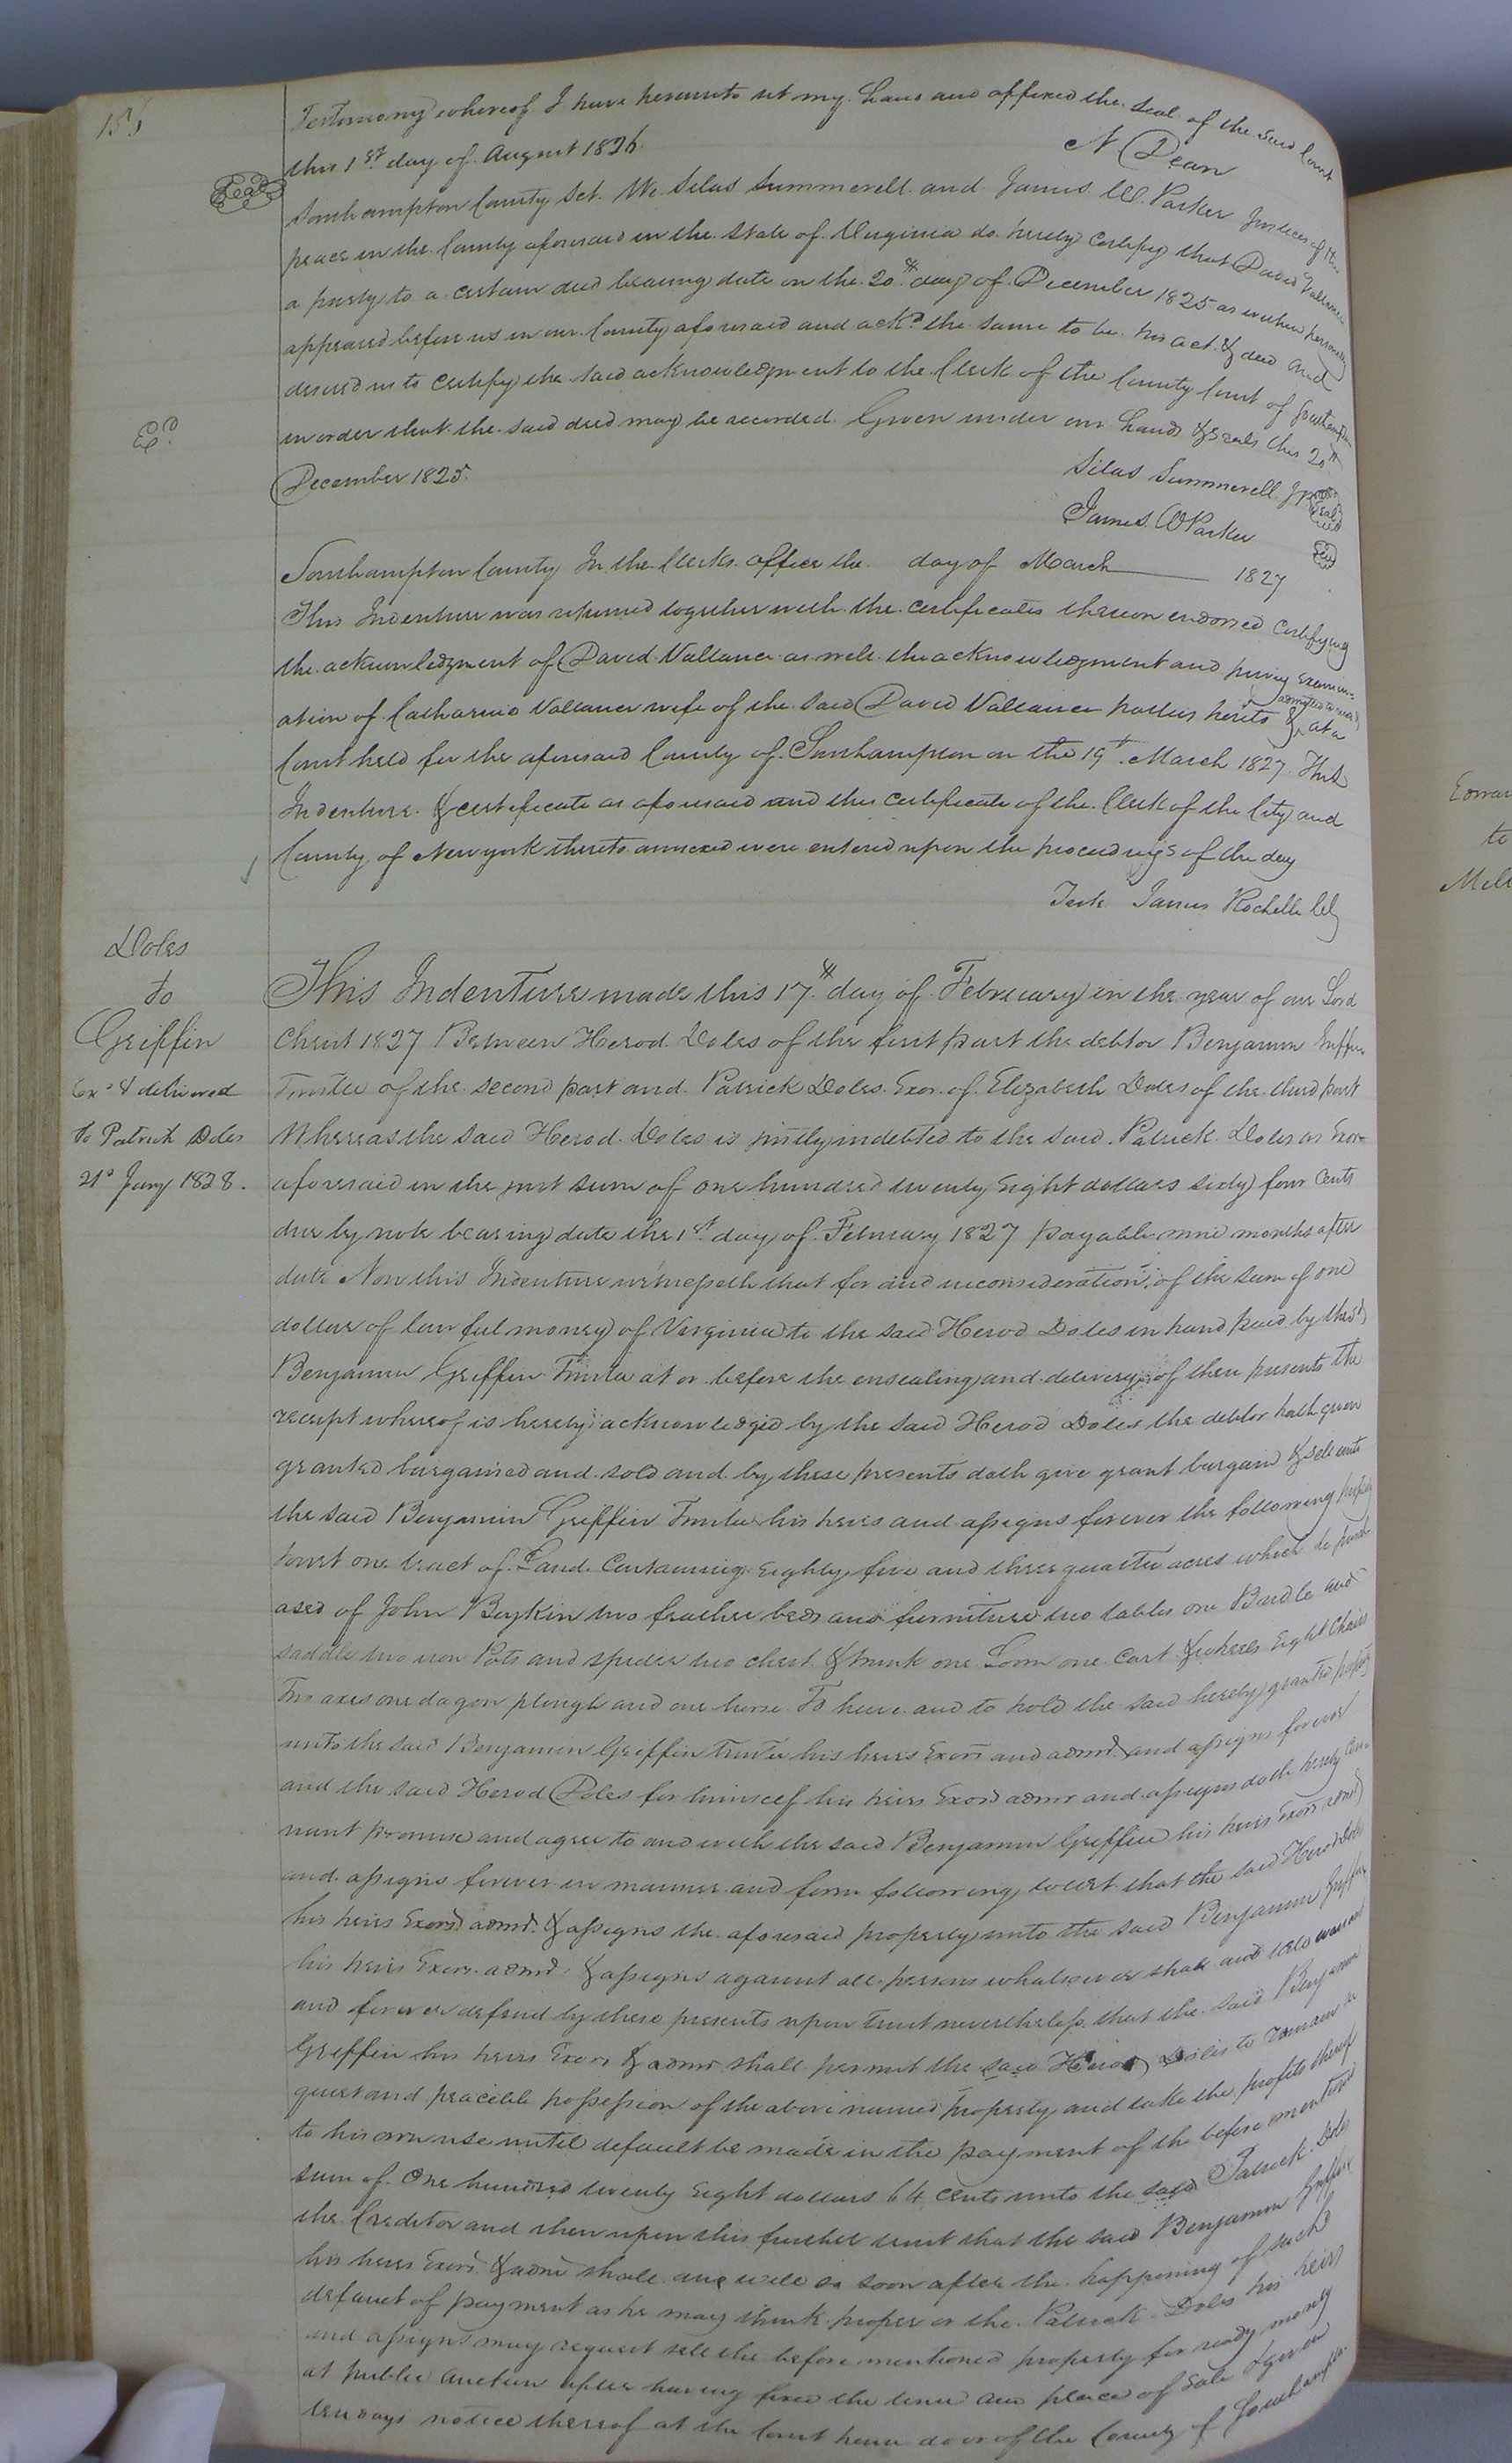 156
Testimony whereof I have hereunto set my hand and affixed the Seal of the said Court
this 1st day of August 1826.
N Dean
Seal
Southampton County Sct. We Silas Summerell and James W. Parker Justices of the
peace in the County aforesaid in the State of Virginia do hereby certify that David Vallance
a party to a certain deed bearing date on the 20th day of December 1825 as written personally
appeared before us in our County aforesaid and ackd the same to be his act & deed and
desired us to certify the said acknowledgment to the Clerk of the County Court of Southampton
in order that the said deed may be recorded. Given under our hands & Seals this 20th
December 1825.
Silas Summerell JP Seal
James W Parker
Southampton County In the Clerks office the day of March 1827
This Indenture was returned together with the certificates thereon endorsed certifying
the acknowledgment of David Vallance as well the acknowledgment and privy examin-
ation of Catharine Vallance wife of the said David Vallance parties hereto & admitted to record at a
Court held for the aforesaid County of Southampton on the 19th March 1827. This
Indenture & certificate as aforesaid and the certificate of the Clerk of the City and
County of New york thereto annexed were entered upon the proceedings of the day
Teste James Rochelle Clk
Doles
to
Griffin
Exd & delivered
to Patrick Doles
21st Jany 1828.
This Indenture made this 17th day of February in the year of our Lord
Christ 1827 Between Herod Doles of the first part the debtor Benjamin Griffin
Trustee of the second part and Patrick Doles Exor. of Elizabeth Doles of the third part
Whereas the said Herod Doles is justly indebted to the said Patrick Doles as Exor
aforesaid in the just sum of one hundred twenty Eight dollars sixty four Cents
due by note bearing date the 1st day of February 1827 payable nine months after
date Now this Indenture witnesseth that for and in consideration of the sum of one
dollar of lawful money of Virginia to the said Herod Doles in hand paid by the sd
Benjamin Griffin Trustee at or before the ensealing and delivery of these presents the
receipt whereof is hereby acknowledged by the said Herod Doles the debtor hath given
granted bargained and sold and by these presents doth give grant bargain & sell unto
the said Benjamin Griffin Trustee his heirs and assigns forever the following property
towit one tract of Land Containing Eighty five and three quarter acres which he purch
ased of John Boykin two feather beds and furniture two tables one Bridle and
saddle two iron Pots and spider two chest & trunk one Loom one Cart & wheels Eight Chairs
Two axes one dagon plough and one horse To have and to hold the said hereby granted property
unto the said Benjamin Griffin Trustee his heirs Exors and admrs and assigns forever
and the said Herod Doles for himself his heirs Exors admr and assigns doth hereby Cove-
nant promise and agree to and with the said Benjamin Griffin his heirs Exors admrs
and assigns forever in manner and form following towit that the said Herod Doles
his heirs Exors admrs & assigns the aforesaid property unto the said Benjamin Griffin
his heirs Exors admrs & assigns against all persons whatsoever shall and will warrant
and forever defend by these presents upon trust nevertheless that the said Benjamin
Griffin his heirs Exors & admrs shall permit the said Herod Doles to remain in
quiet and peacible possession of the above named property and take the profits thereof
to his own use until default be made in the payment of the before mentioned
sum of One hundred twenty Eight dollars 64 cents unto the said Patrick Doles
the Creditor and then upon this further trust that the said Benjamin Griffin
his heirs Exors & admr shall and will so soon after the happening of such
default of payment as he may think proper or the Patrick Doles his heirs
and assigns may request sell the before mentioned property for ready money
at public Auction after having fixed the time and place of Sale & given
ten days notice thereof at the Court house door of the County of Southampton